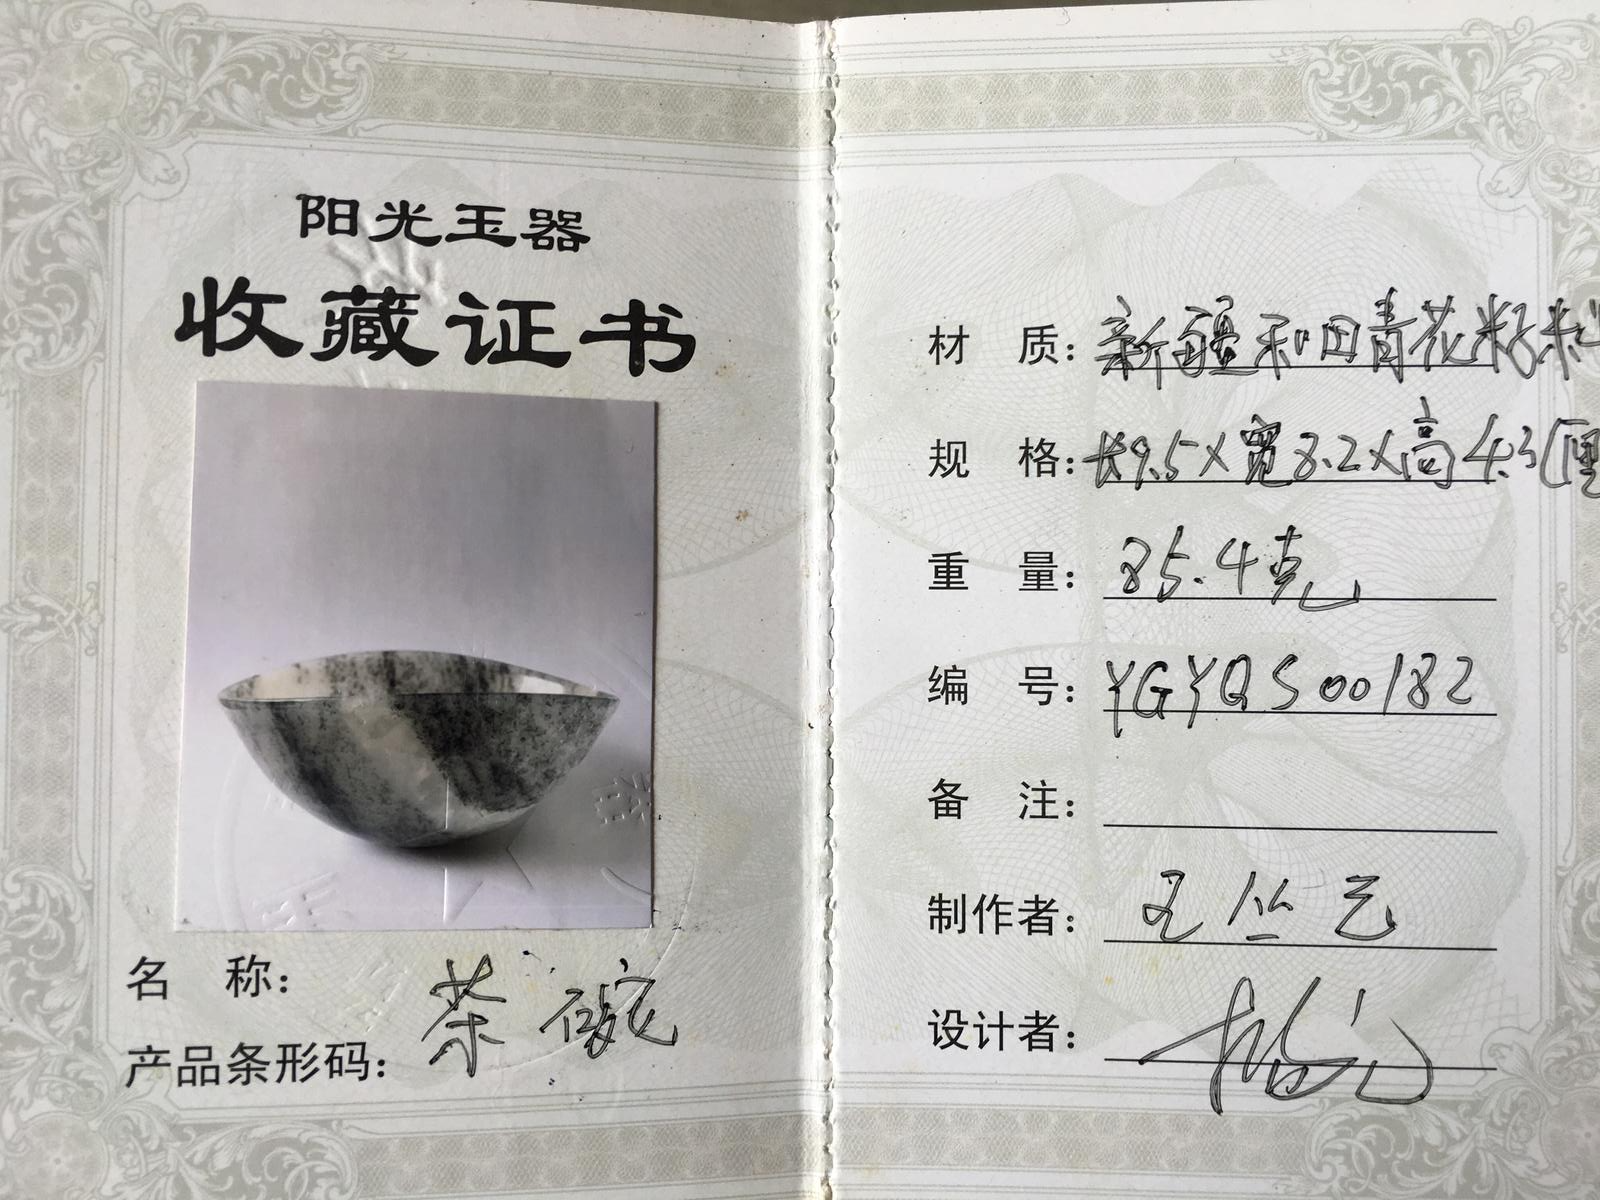 阳光玉器
收藏证书
名 称：茶碗
产品条形码：
材 质：新疆和田青花籽料
规 格：长9.5×宽8.2×高4.3厘
重 量：85.4克
编 号：YGYQS00182
备 注：
制作者：
设计者：